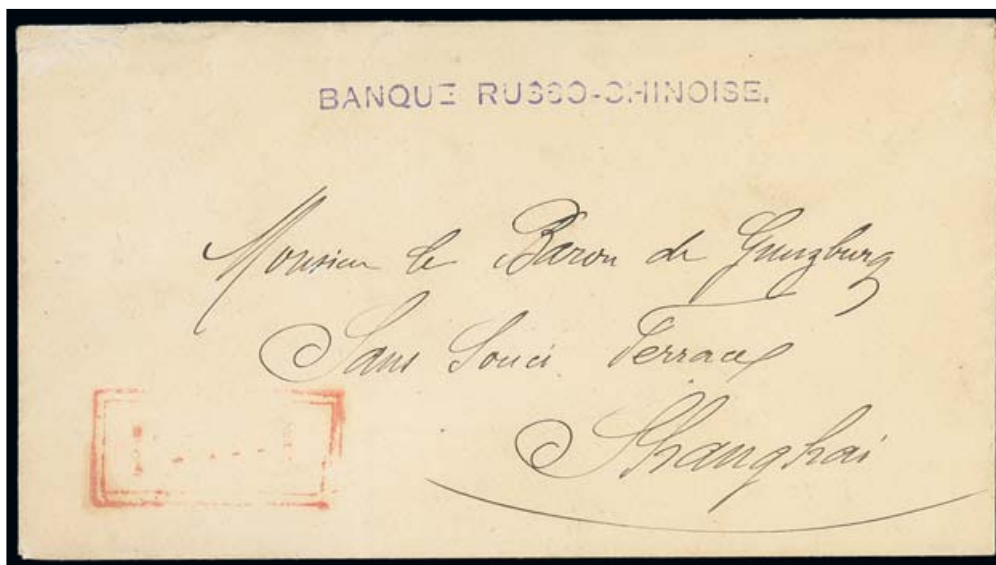 BANQUE RUSSO-CHINOISE.
Monsieur le Baron de Gunzburg
Sans Souci Terrace
Shanghai